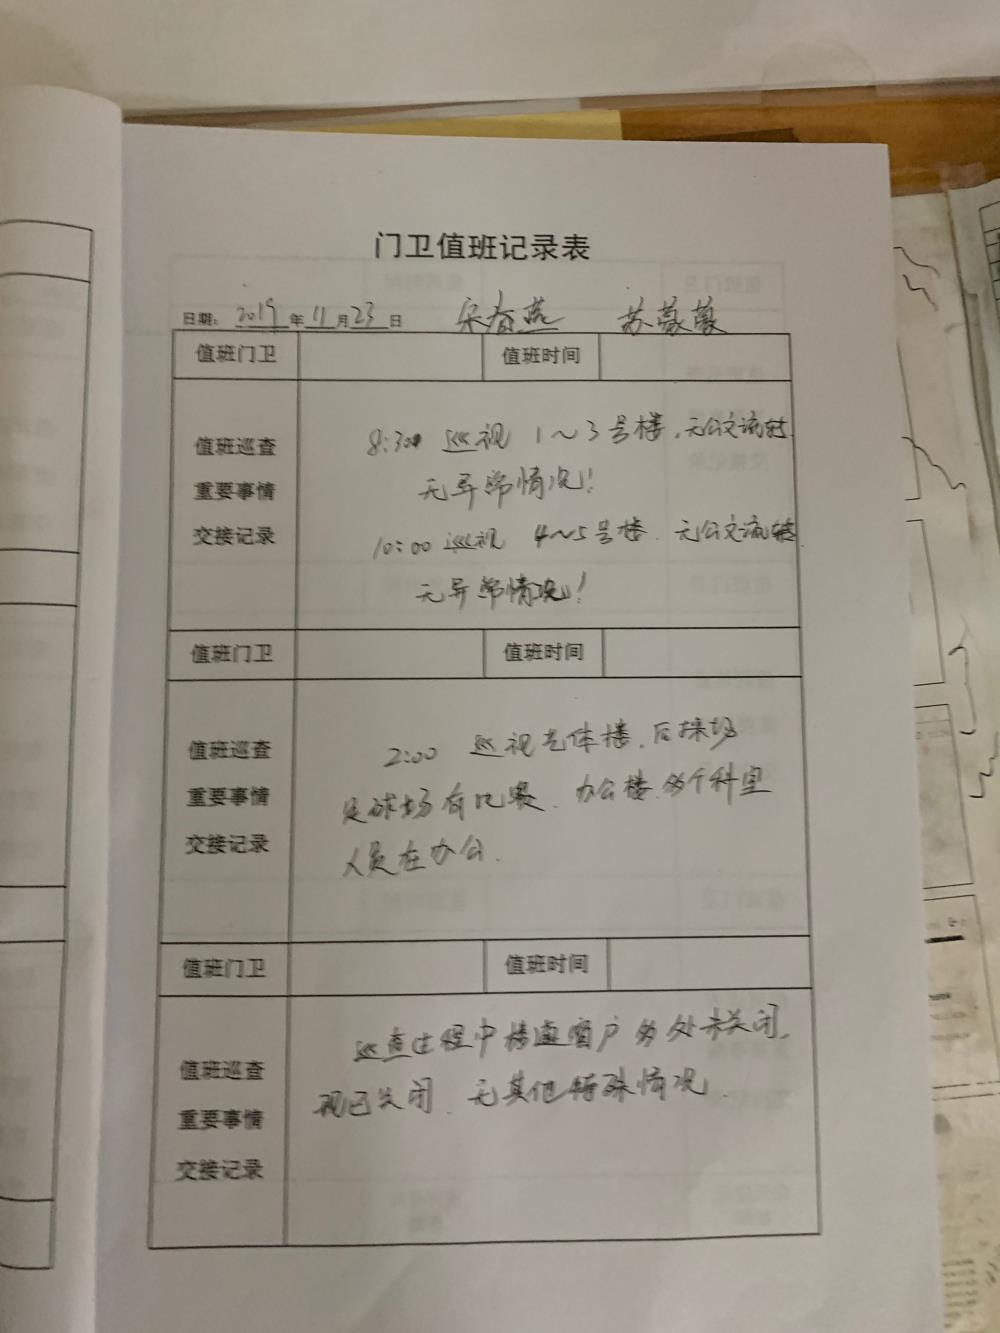 门卫值班记录表
日期: 2019 年 11 月 23 日 宋春燕 苏蒙蒙
值班门卫 值班时间
值班巡查
重要事情
交接记录
8:30 巡视 1~3号楼,无公文流转
无异常情况!
10:00 巡视 4~5号楼. 无公文流转.
无异常情况!
值班门卫 值班时间
值班巡查
重要事情
交接记录
2:00 巡视艺体楼,后操场
足球场有比赛、办公楼多个科室
人员在办公.
值班门卫 值班时间
值班巡查
重要事情
交接记录
巡查过程中楼道窗户多处未关闭,
现已关闭、无其他特殊情况.